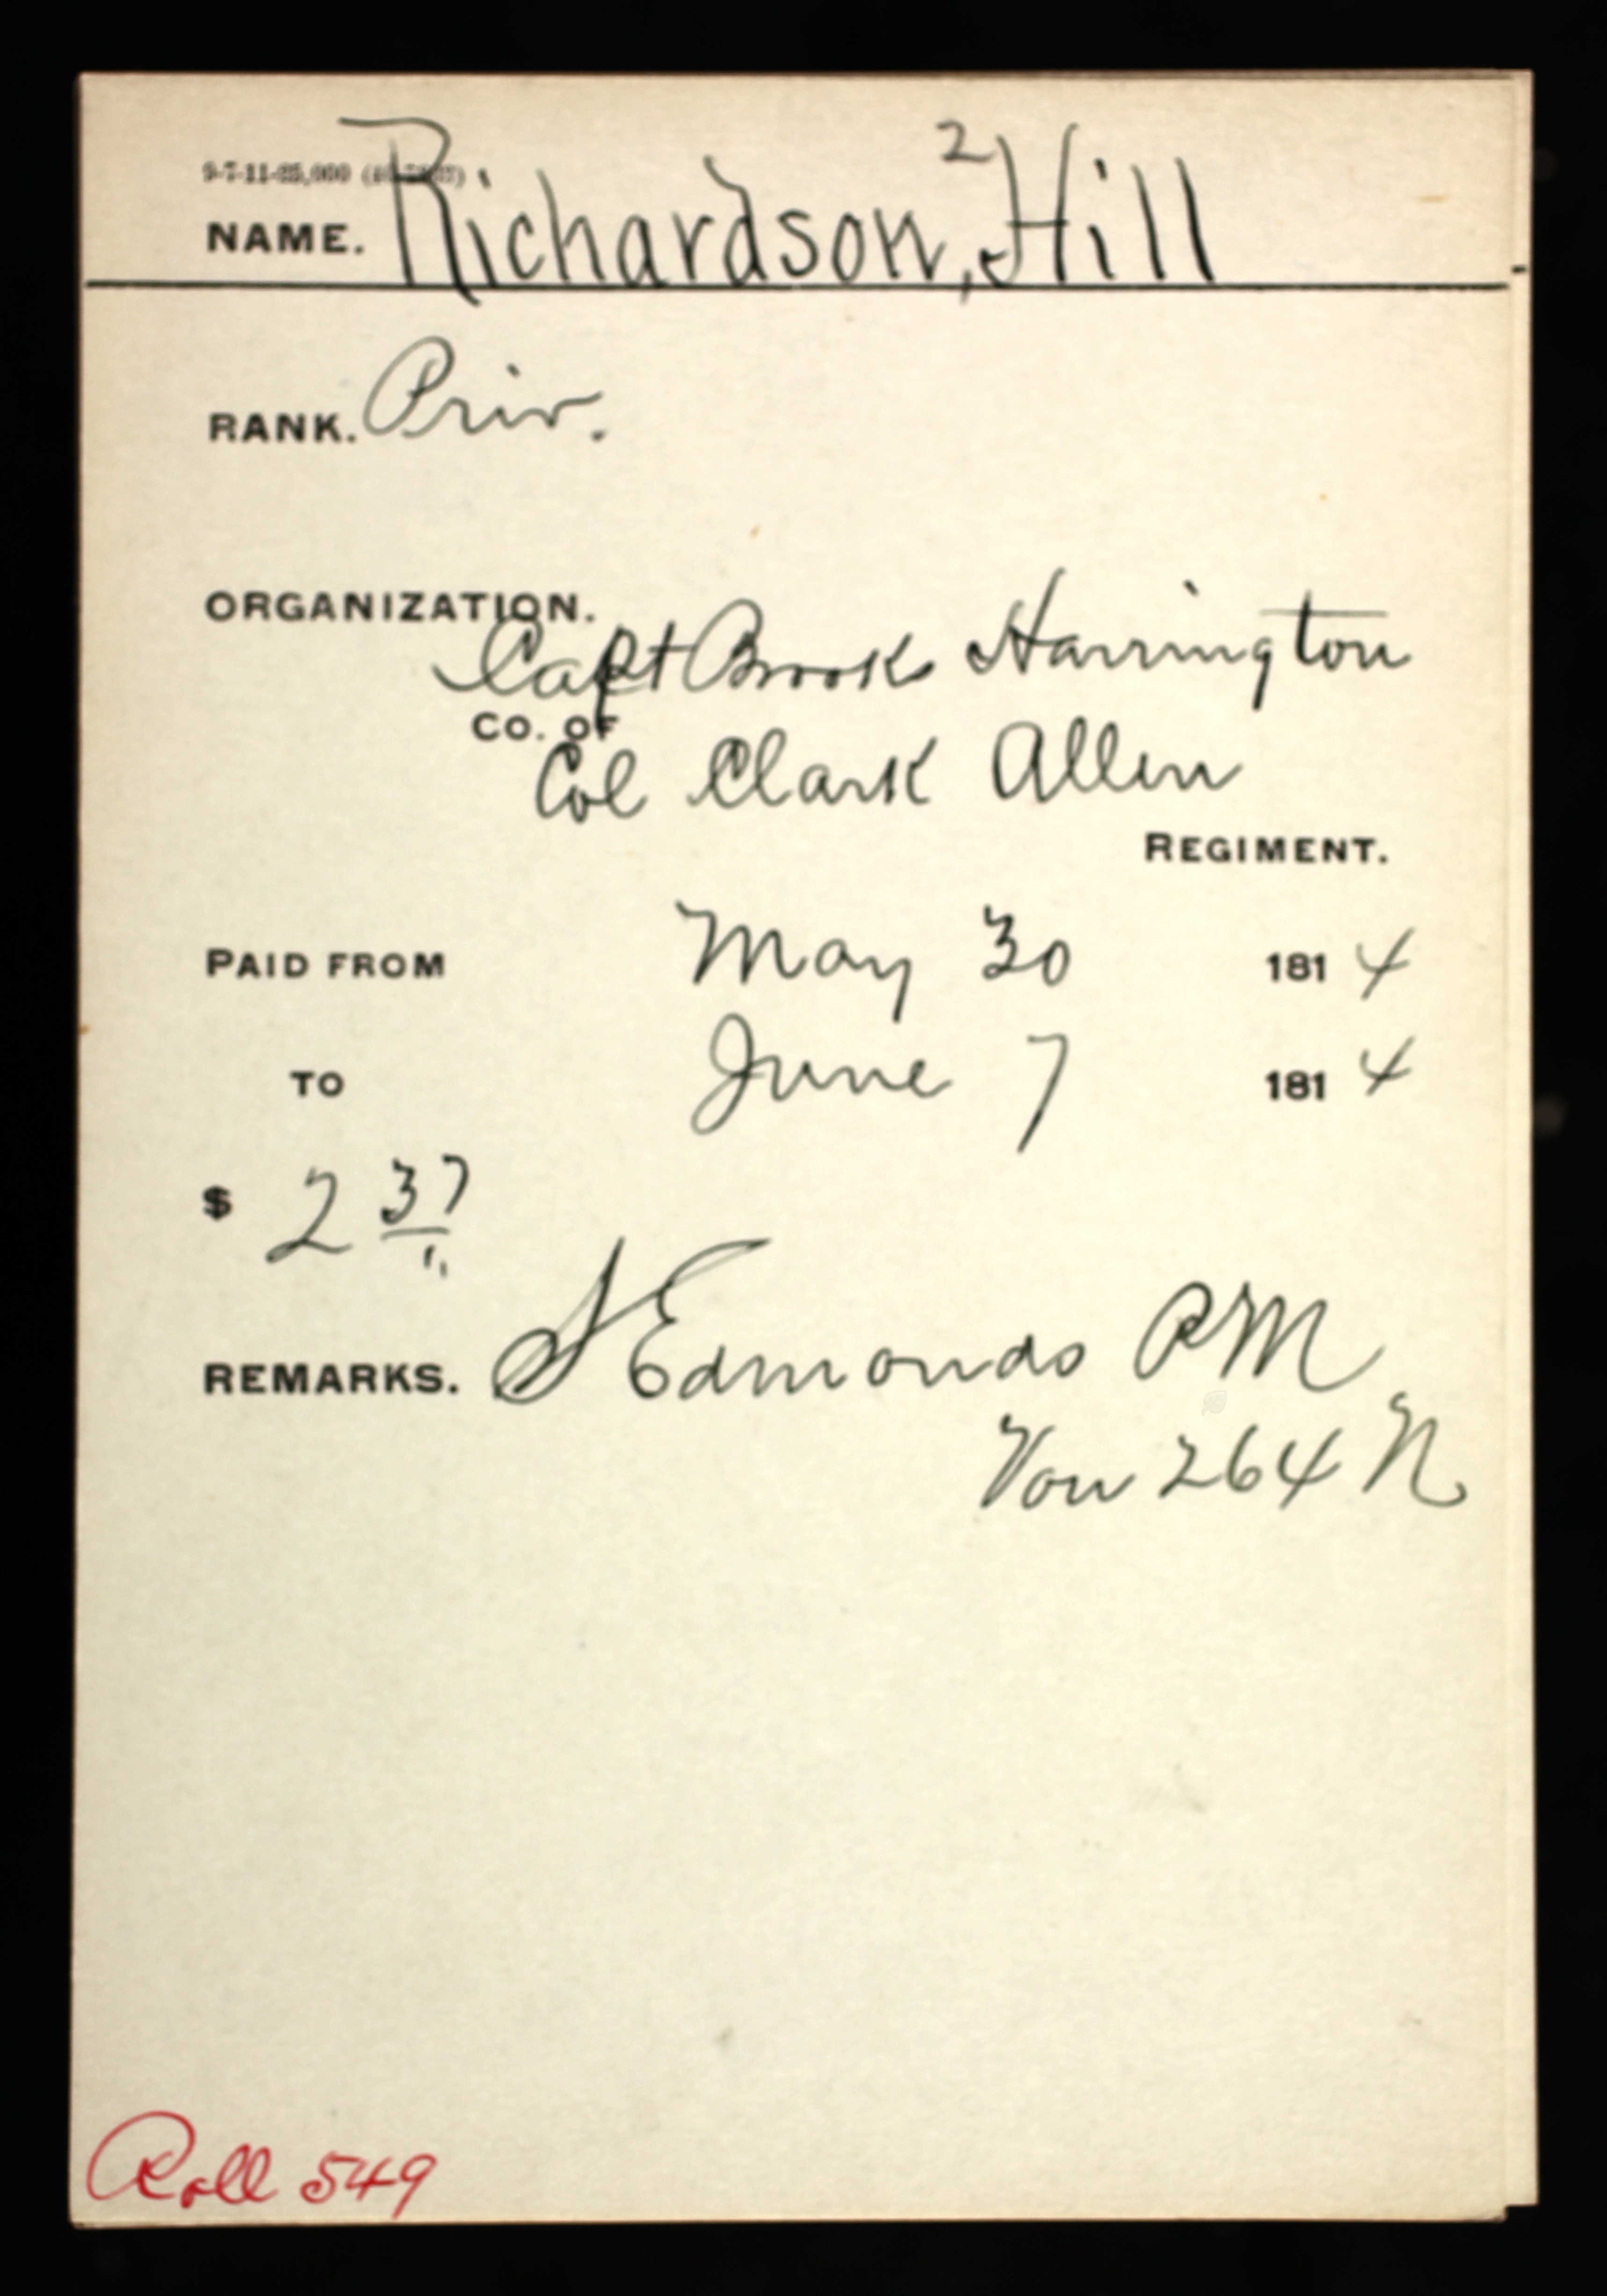 9-7-11-25,000
2
NAME. Richardson, Hill
RANK. Priv.
ORGANIZATION.
Capt Brooks Harrington
CO. OF
Col Clark Allen
REGIMENT.
PAID FROM May 30 1814
TO June 7 1814
$ 2 37
REMARKS. S Edmonds PM
Vou 264 N
Roll 549